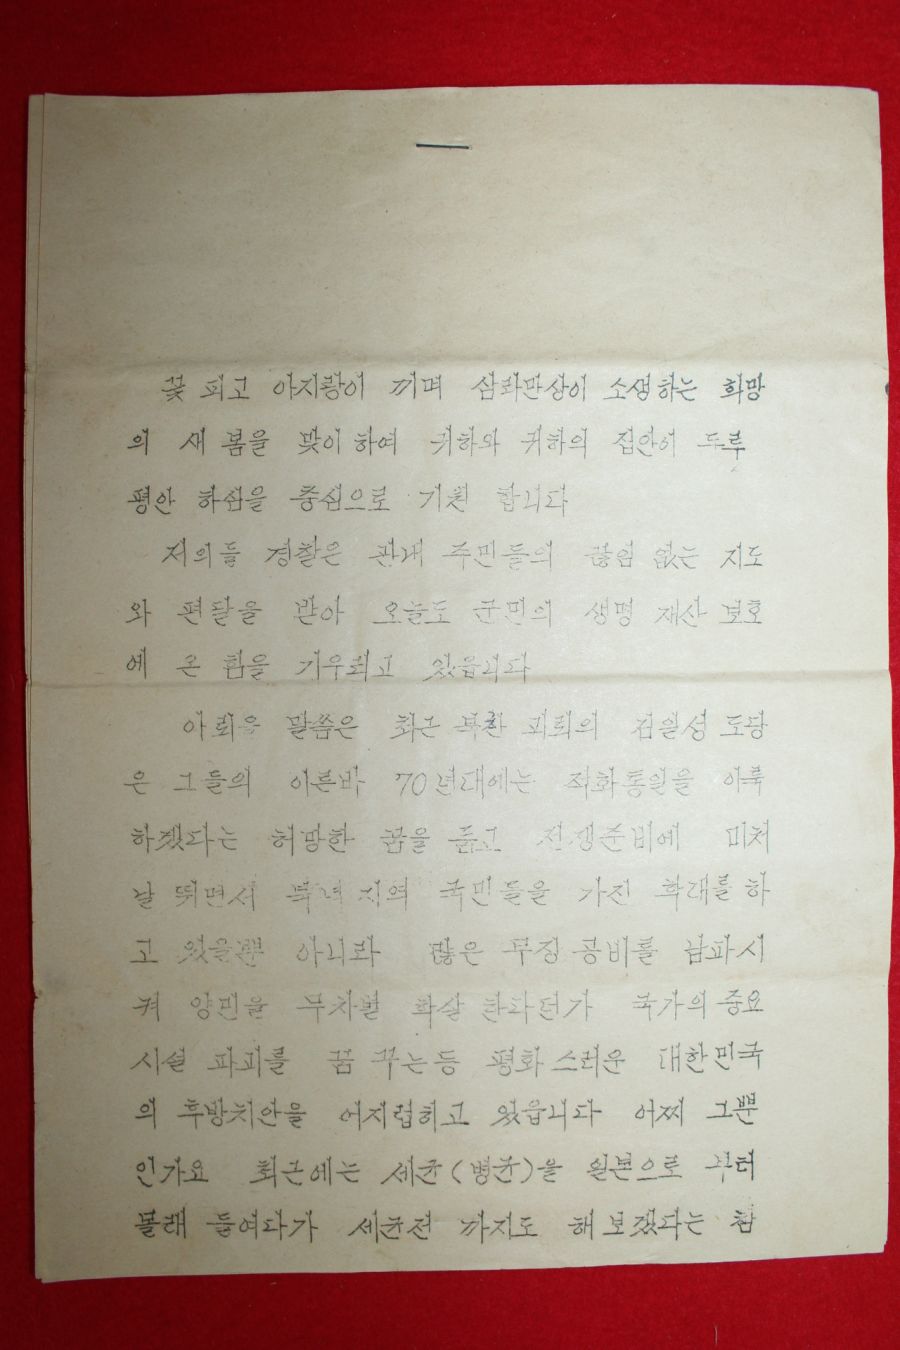 꽃 피고 아지랑이 끼며 삼라만상이 소생하는 희망
의 새 봄을 맞이하여 귀하와 귀하의 집안에 두루
평안 하심을 충심으로 기원 합니다
저의들 경찰은 관내 주민들의 끊임 없는 지도
와 편달을 받아 오늘도 군민의 생명 재산 보호
에 온 힘을 기우리고 있읍니다
아뢰올 말씀은 최근 북한 괴뢰의 김일성 도당
은 그들의 이른바 70년대에는 적화통일을 이룩
하겠다는 허망한 꿈을 품고 전쟁준비에 미처
날 뛰면서 북녘 지역 국민들을 가진 학대를 하
고 있을뿐 아니라 많은 무장 공비를 남파시
켜 양민을 무차별 학살 한다던가 국가의 중요
시설 파괴를 꿈 꾸는등 평화스러운 대한민국
의 후방치안을 어지럽히고 있읍니다 어찌 그뿐
인가요 최근에는 세균(병균)을 일본으로 부터
몰래 들여다가 세균전 까지도 해보겠다는 참